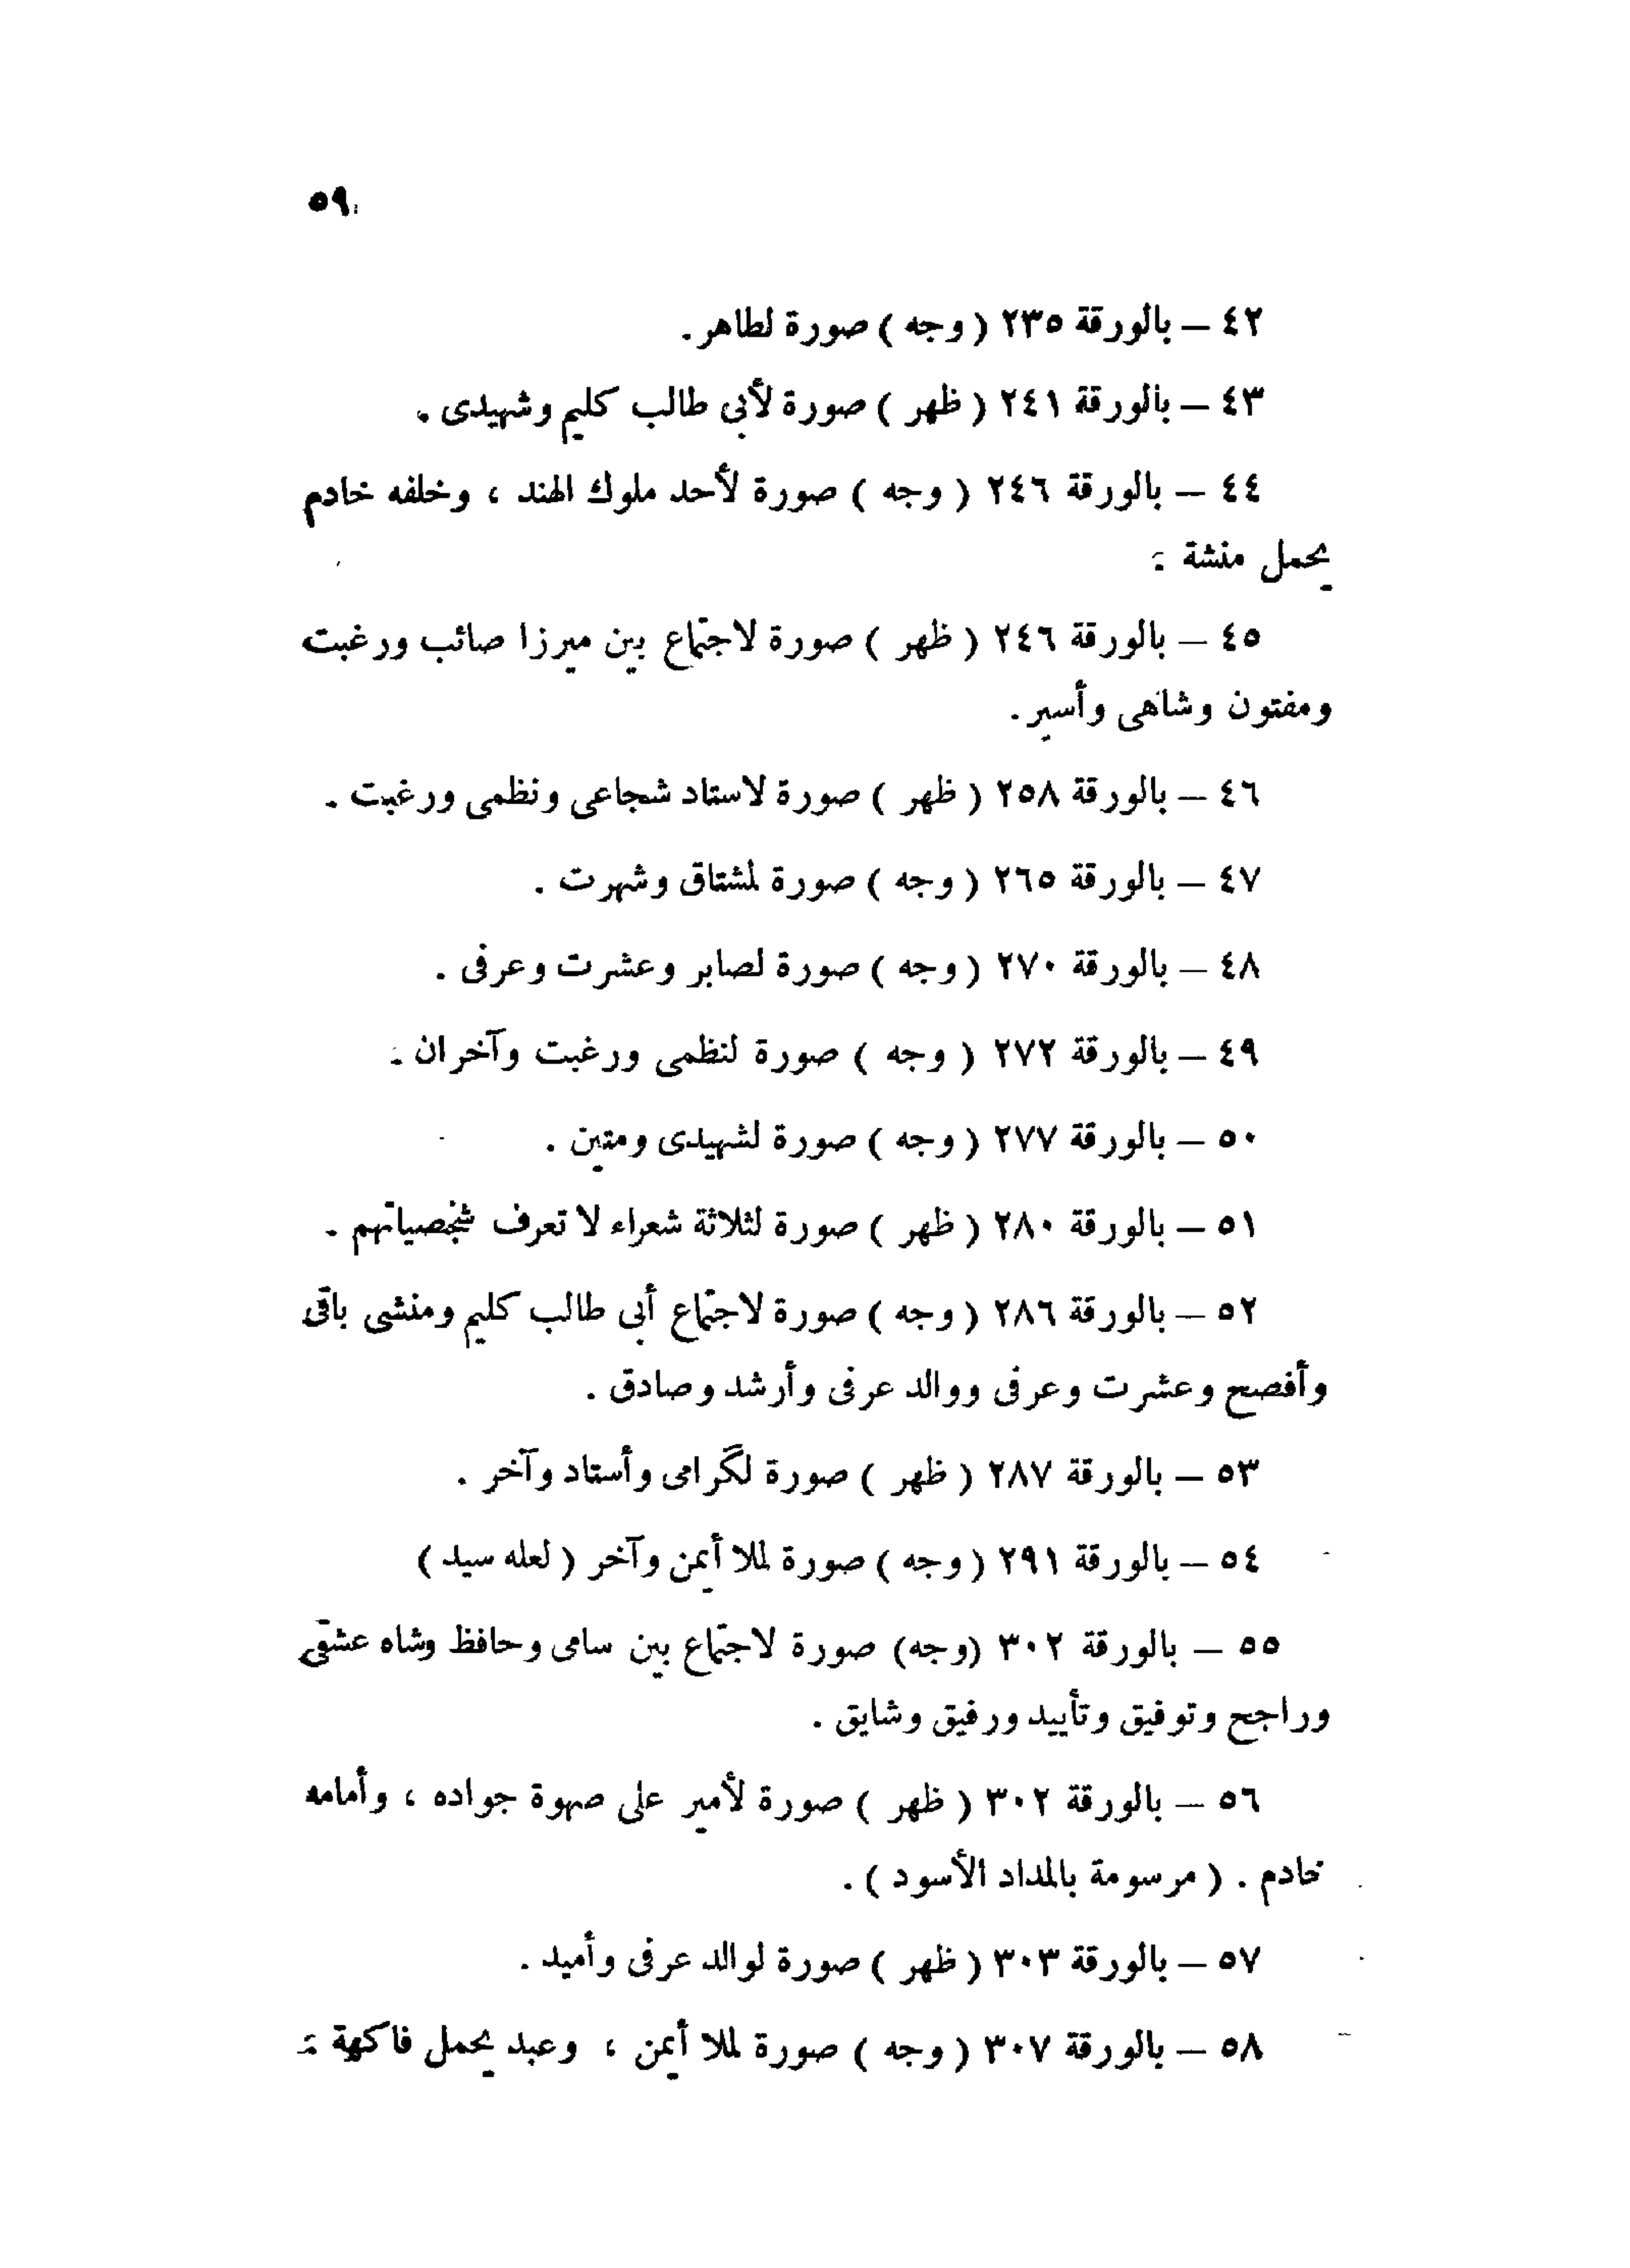 ٥٩
٤٢ – بالورقة ٢٣٥ ( وجه ) صورة لطاهر .
٤٣ – بالورقة ٢٤١ ( ظهر ) صورة لأبى طالب كليم وشهيدى .
٤٤ – بالورقة ٢٤٦ ( وجه ) صورة لأحد ملوك الهند ، وخلفه خادم
يحمل منشة .
٤٥ – بالورقة ٢٤٦ ( ظهر ) صورة لاجتماع بين ميرزا صائب ورغبت
ومفتون وشاهى وأسير .
٤٦ – بالورقة ٢٥٨ ( ظهر ) صورة لاستاد شجاعى ونظمى ورغبت .
٤٧ – بالورقة ٢٦٥ ( وجه ) صورة لمشتاق وشهرت .
٤٨ – بالورقة ٢٧٠ ( وجه ) صورة لصابر وعشرت وعرفى .
٤٩ – بالورقة ٢٧٢ ( وجه ) صورة لنظمى ورغبت وآخران .
٥٠ – بالورقة ٢٧٧ ( وجه ) صورة لشهيدى ومتين .
٥١ – بالورقة ٢٨٠ ( ظهر ) صورة لثلاثة شعراء لا تعرف شخصياتهم .
٥٢ – بالورقة ٢٨٦ ( وجه ) صورة لاجتماع أبى طالب كليم ومنشى باقى
وأفصح وعشرت وعرفى ووالد عرفى وأرشد وصادق .
٥٣ – بالورقة ٢٨٧ ( ظهر ) صورة لگرامى وأستاد وآخر .
٥٤ – بالورقة ٢٩١ ( وجه ) صورة لملا أيمن وآخر ( لعله سيد )
٥٥ – بالورقة ٣٠٢ (وجه) صورة لاجتماع بين سامى وحافظ وشاه عشقى
وراجح وتوفيق وتأييد ورفيق وشايق .
٥٦ – بالورقة ٣٠٢ ( ظهر ) صورة لأمير على صهوة جواده ، وأمامه
خادم . ( مرسومة بالمداد الأسود ) .
٥٧ – بالورقة ٣٠٣ ( ظهر ) صورة لوالد عرفى وأميد .
٥٨ – بالورقة ٣٠٧ ( وجه ) صورة لملا أيمن ، وعبد يحمل فاكهة .